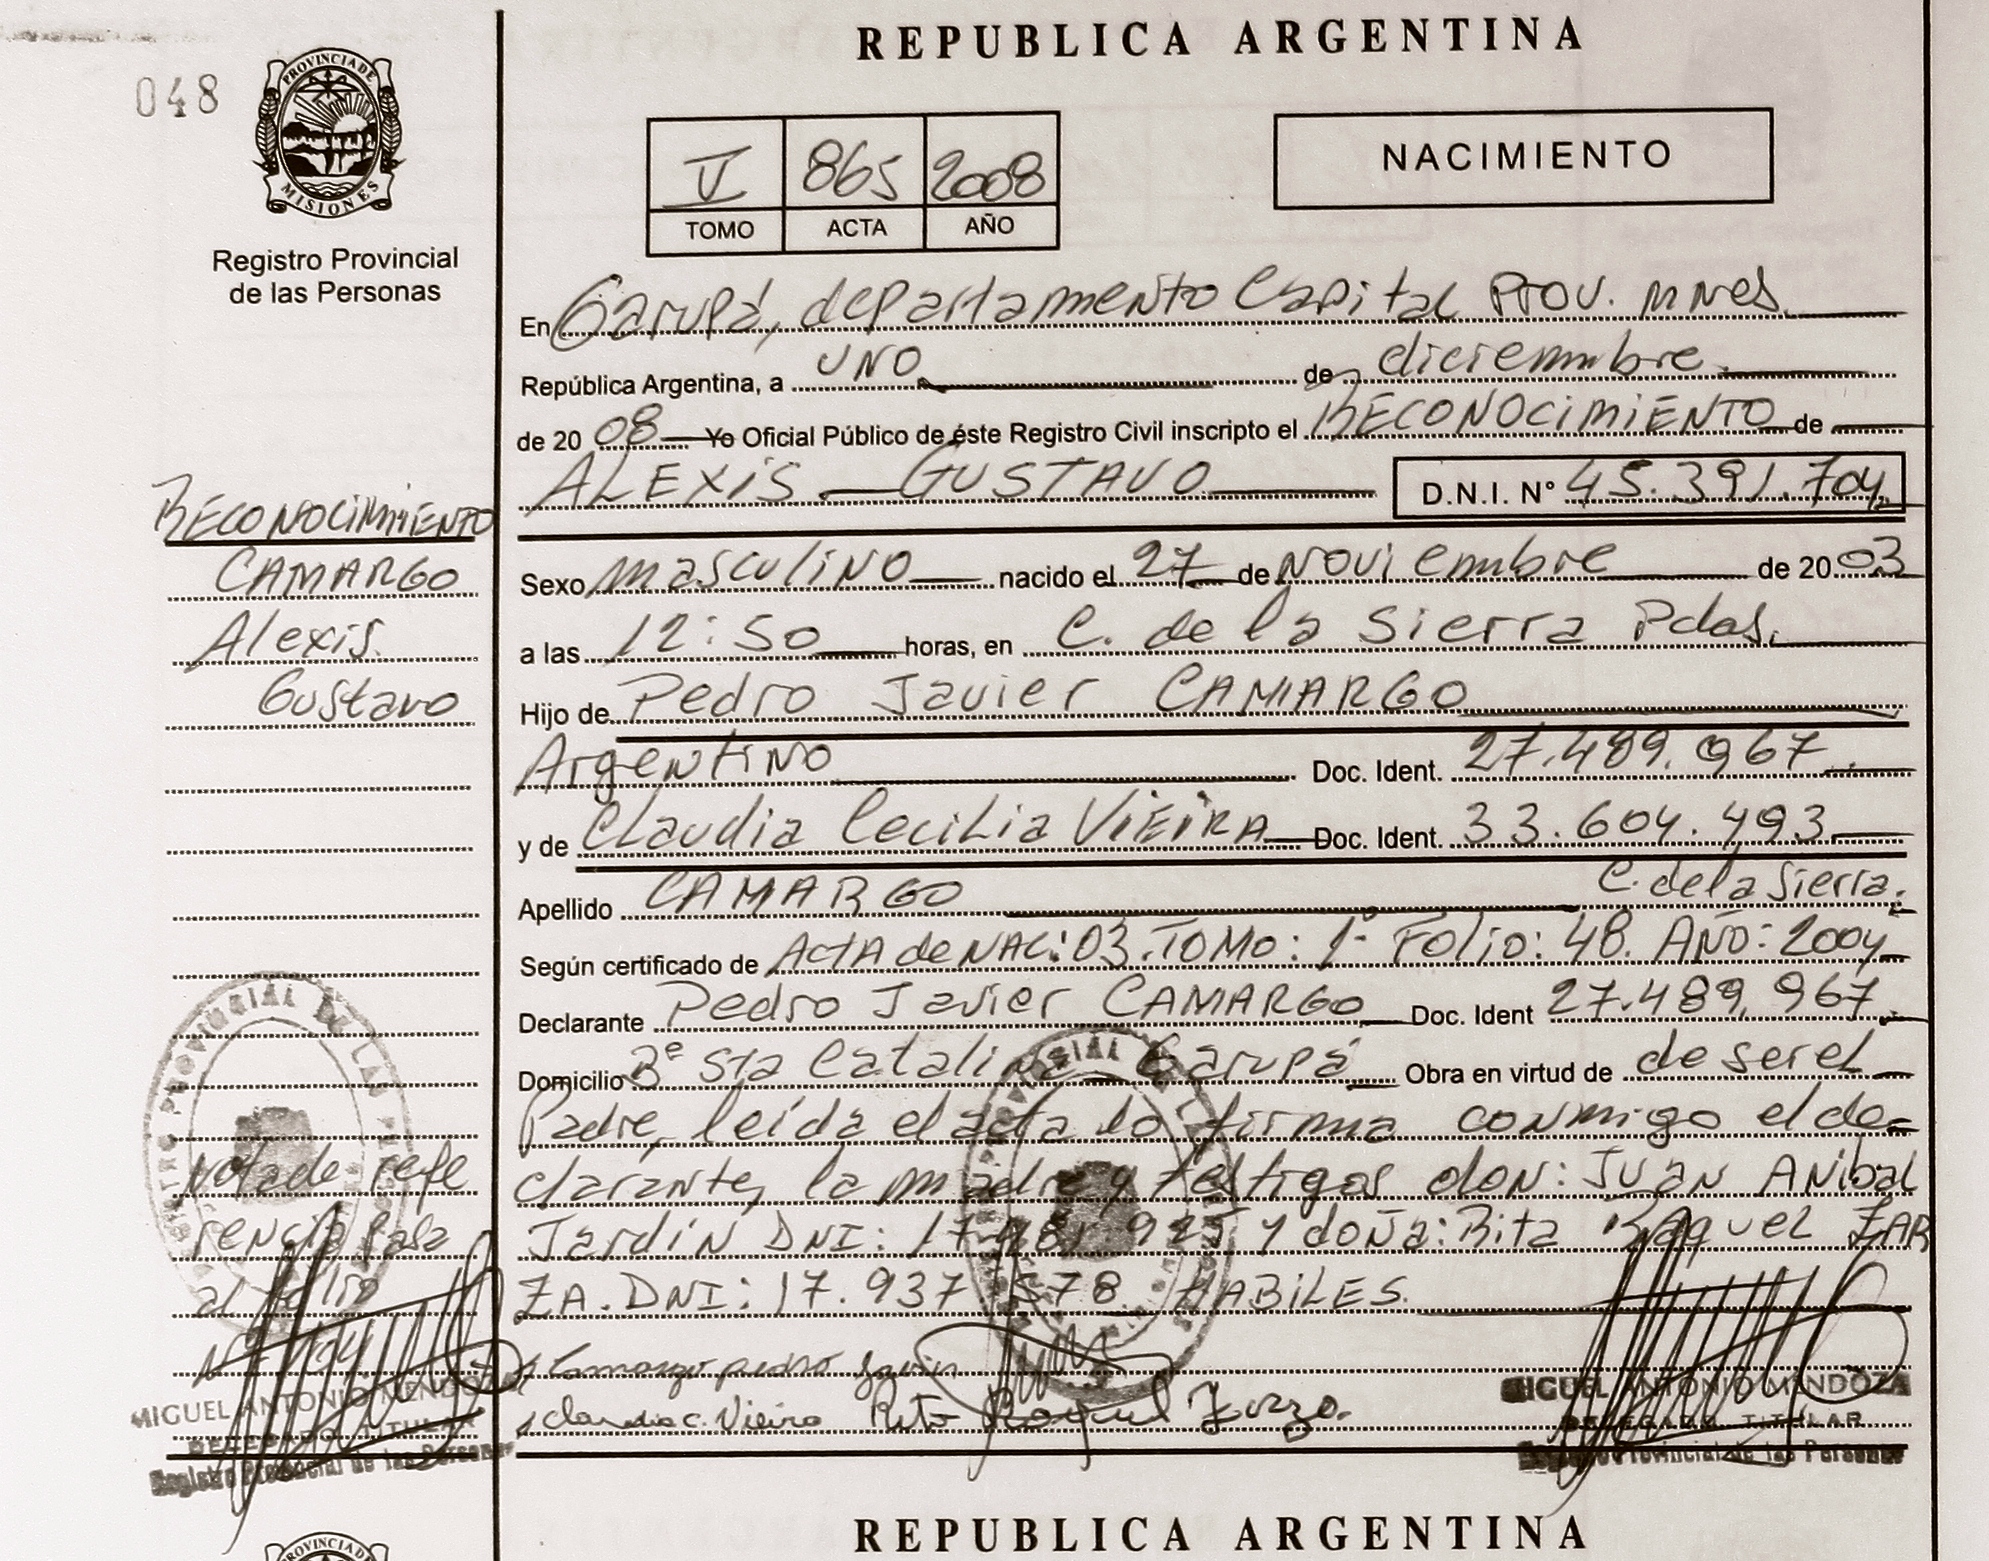 REPUBLICA ARGENTINA
048
PROVINCIA DE
MISIONES
Registro Provincial
de las Personas
V 865 2008
TOMO ACTA AÑO
NACIMIENTO
En Garupá, departamento Capital Prov. Mnes.
República Argentina, a UNO de diciembre
de 20 08 Yo Oficial Público de éste Registro Civil inscripto el RECONOCIMIENTO de
ALEXIS GUSTAVO D.N.I. N° 45.391.704
RECONOCIMIENTO
CAMARGO
Alexis
Gustavo
Sexo masculino nacido el 27 de Noviembre de 20 03
a las 12:50 horas, en C. de la Sierra Pdas.
Hijo de Pedro Javier CAMARGO
Argentino Doc. Ident. 27.489.967
y de Claudia Cecilia VIEIRA Doc. Ident. 33.604.493
Apellido CAMARGO C. de la Sierra.
Según certificado de Acta de NAC: 03. TOMO: 1° Folio: 48. AÑO: 2004
Declarante Pedro Javier CAMARGO Doc. Ident 27.489.967
Domicilio B° Sta Catalina Garupá Obra en virtud de de ser el
Padre, leída el acta la firma conmigo el de=
clarante, la madre y testigos don: Juan Anibal
Jardín DNI: y doña: Rita Raquel ZAR
ZA. DNI: 17.937.578 HABILES.
Nota de refe
rencia pasa
al folio
Camargo pedro Javier
Claudia C. Vieira Rita Raquel Zarza.
MIGUEL ANTONIO MENDOZA
DELEGADO TITULAR
Registro Provincial de las Personas
MIGUEL ANTONIO MENDOZA
DELEGADO TITULAR
Registro Provincial de las Personas
PROVINCIA DE
REPUBLICA ARGENTINA